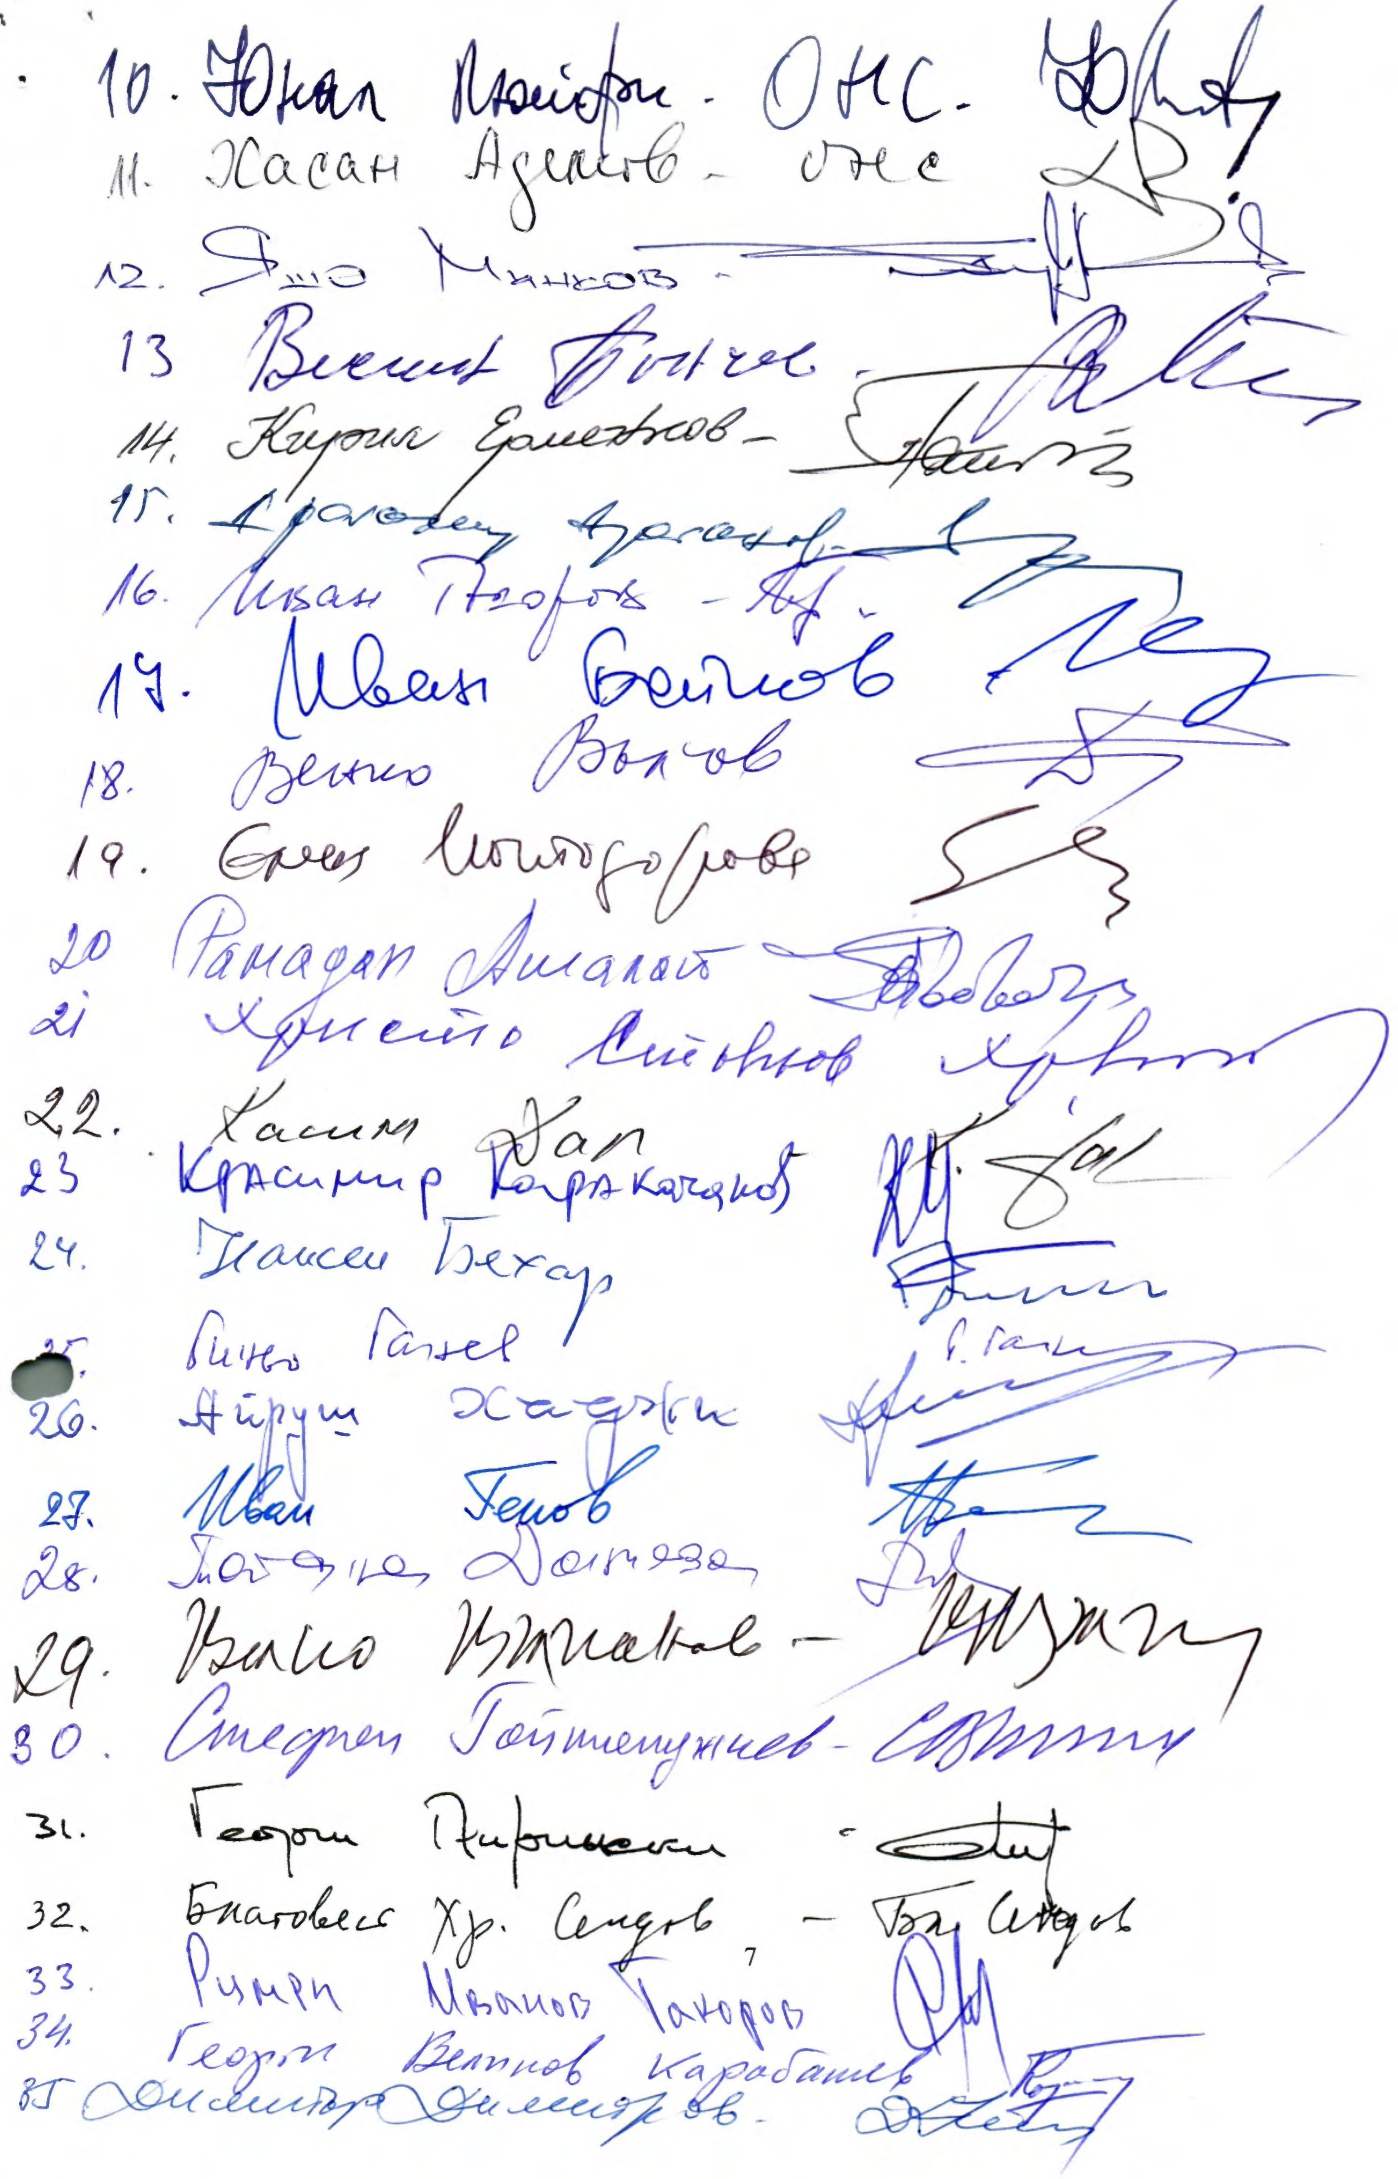 10. Юнал Лютфи - ОНС -
11. Хасан Адемов - ОНС
12. Яшо Минков -
13 Веселин Бончев -
14. Кирил Ерменков -
15. Драгомир Драганов -
16. Иван Тодоров -
17. Иван Бойков
18. Венко Вълчов
19. Елена Поптодорова
20 Рамадан Аталай
21 Христо Стоянов
22. Касим Дал
23 Красимир Каракачанов
24. Нансен Бехар
25. Гиньо Ганев Г. Ганев
26. Айруш Хаджи
27. Иван Генов
28. Татяна Дончева
29. Вълкo Вълканов -
30. Стефан Гайтанджиев -
31. Георги Пирински -
32. Благовест Хр. Сендов - Бл. Сендов
33. Румен Иванов
34. Георги Велинов Карабашев
35 Димитър Димитров -